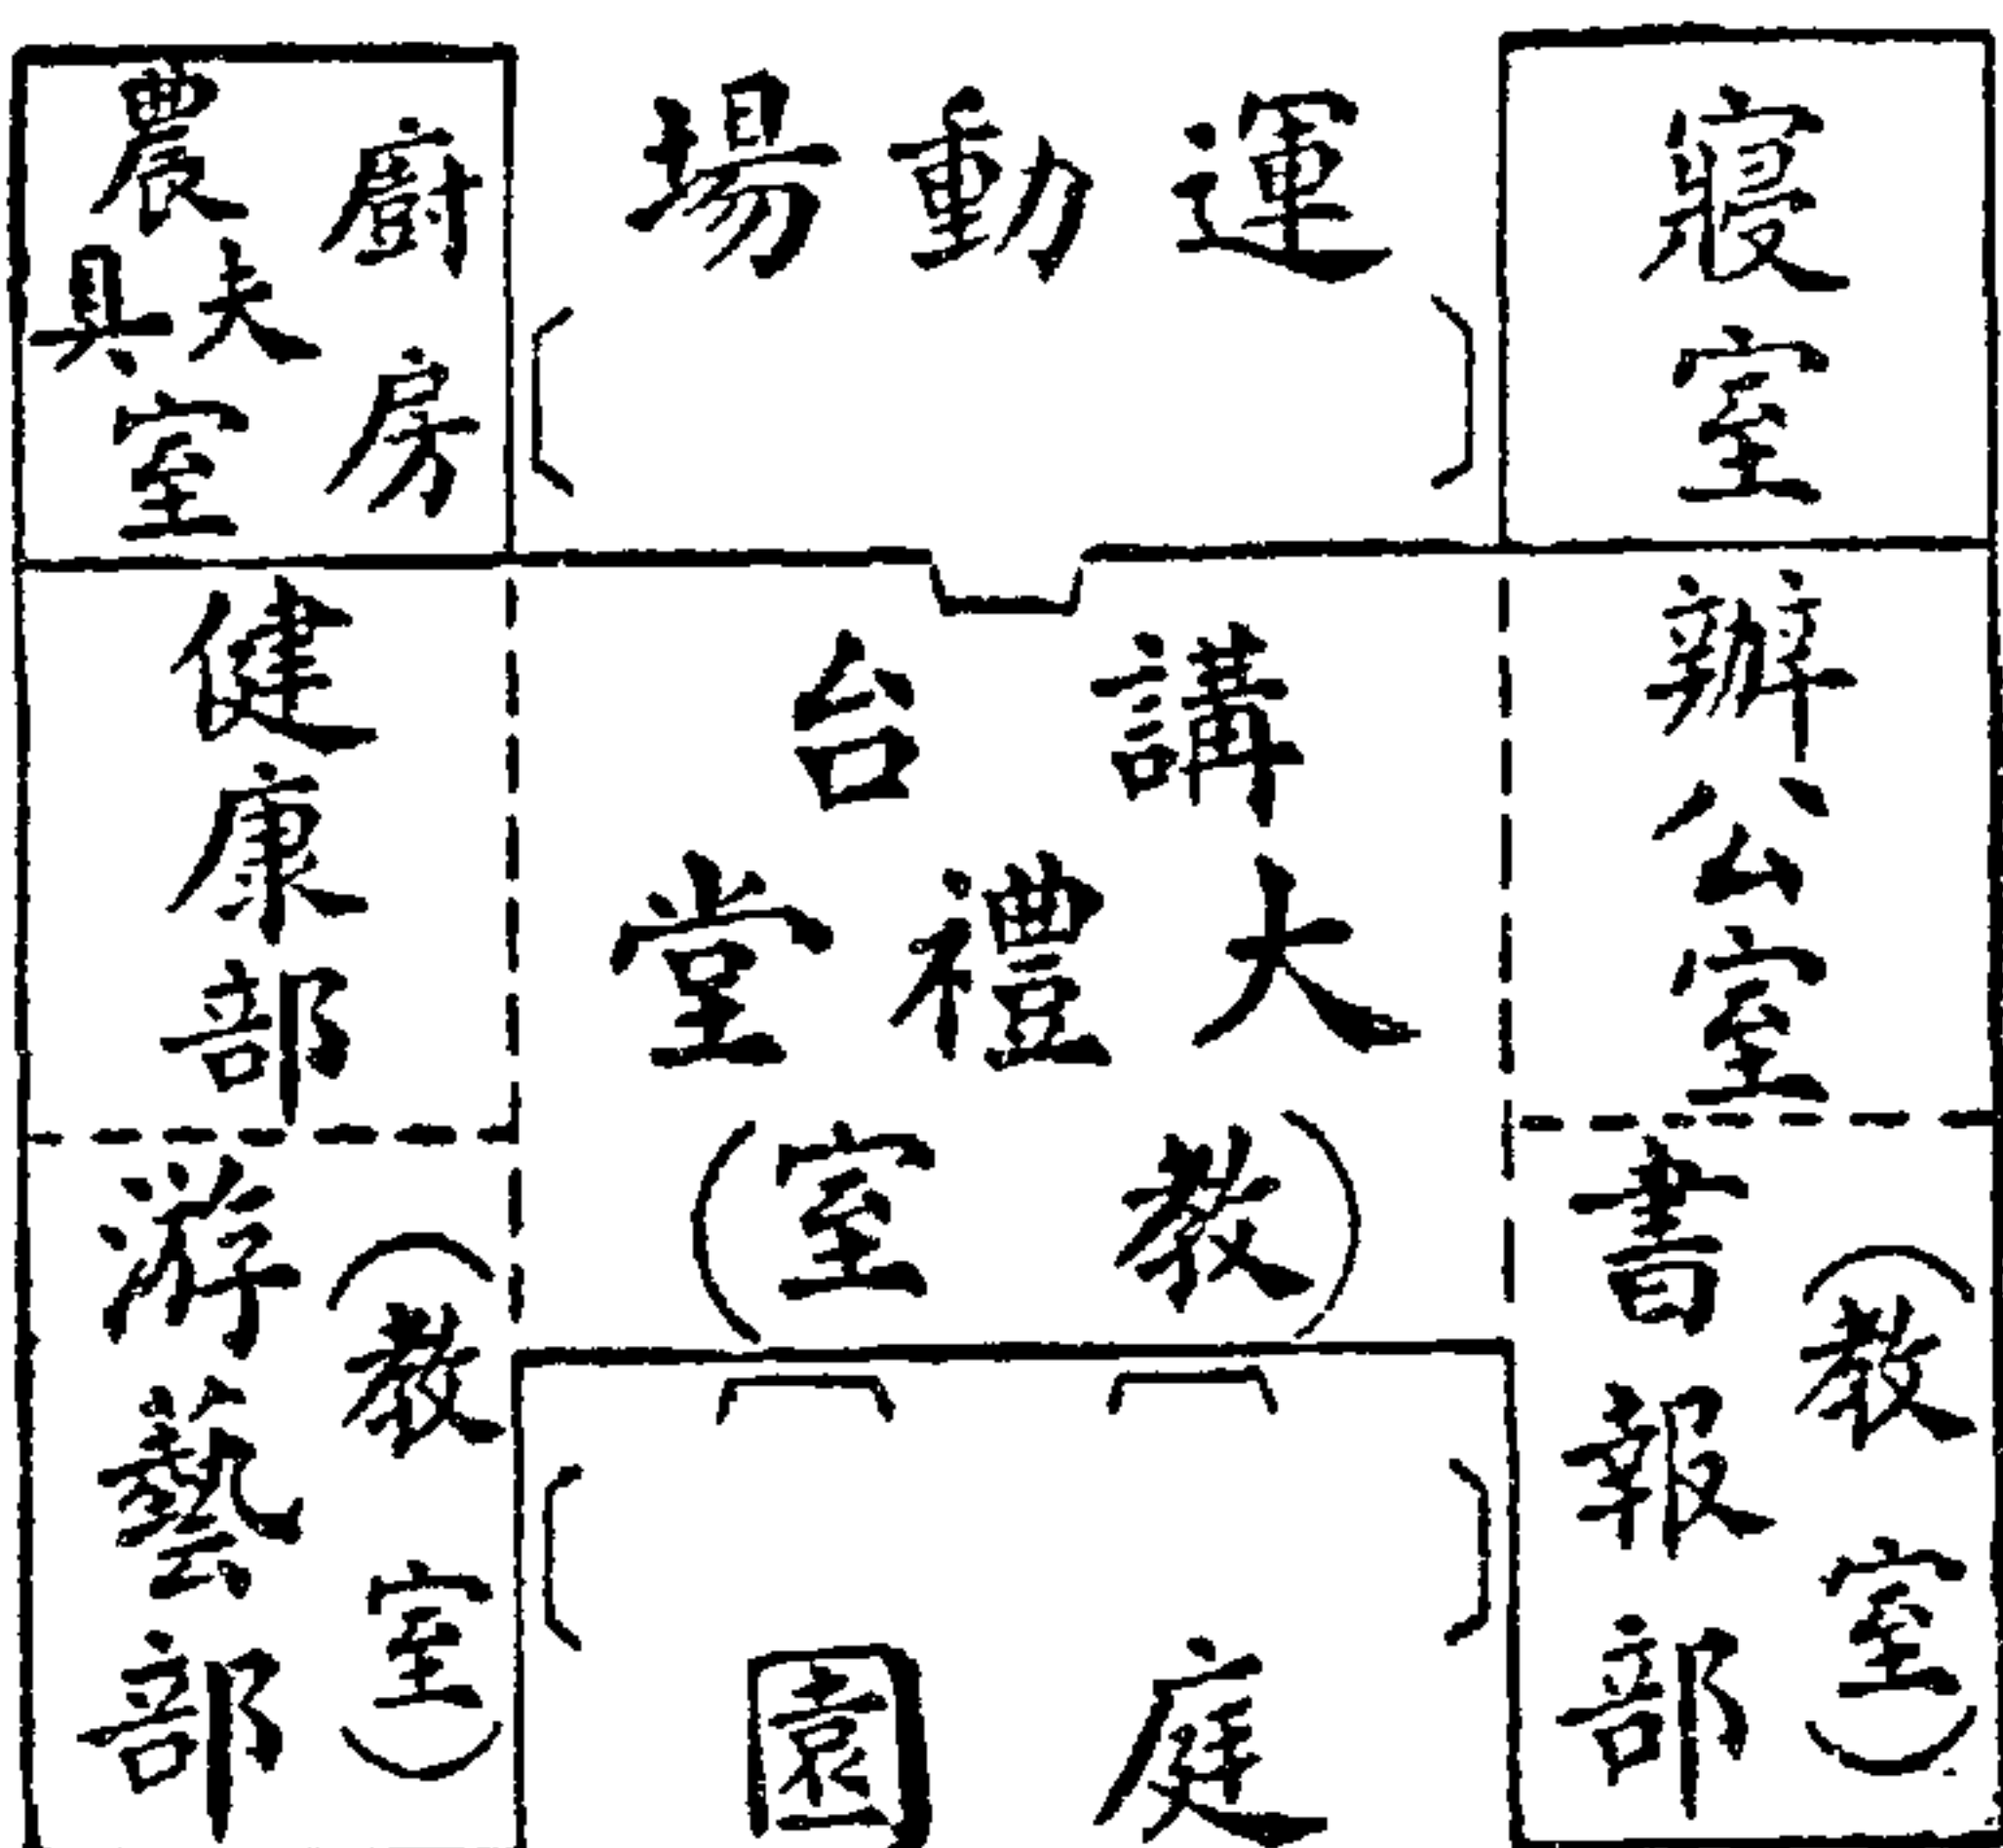 寢室
運動場
廚房
農夫具室
辦公室
講台
大禮堂
(教室)
健康部
(教室)
書報部
庭園
(教室)
游藝部